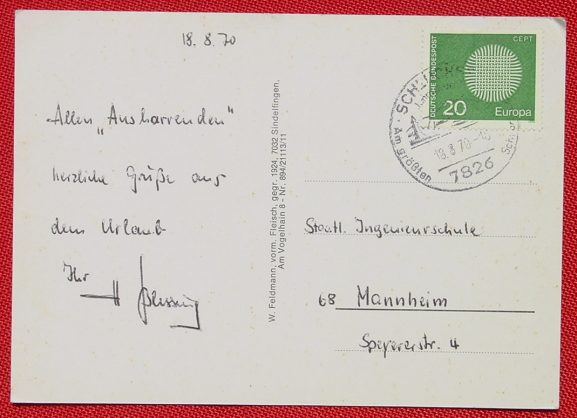 18. 8. 70
Allen „Ausharrenden"
herzliche Grüße aus
dem Urlaub
Ihr
H Blessing
W. Feldmann, vorm. Fleisch, gegr. 1924, 7032 Sindelfingen,
Am Vogelhain 8 - Nr. 694/21113/11
DEUTSCHE BUNDESPOST
CEPT
20
Europa
Am größten
18.8.70
7826
Staatl. Ingenieurschule
68 Mannheim
Speyererstr. 4